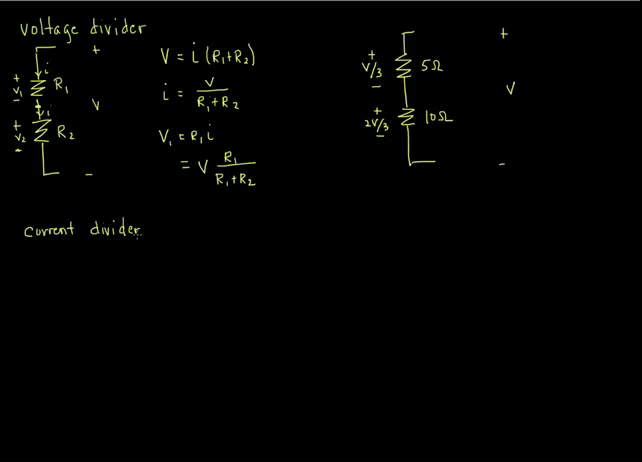 voltage divider
i
+
V₁
−
R₁
i
+
V₂
−
R₂
+
V
−
V = i (R₁+R₂)
i = V / (R₁+R₂)
V₁ = R₁ i
= V R₁ / (R₁+R₂)
+
V/3
−
5Ω
+
2V/3
−
10Ω
+
V
−
current divider